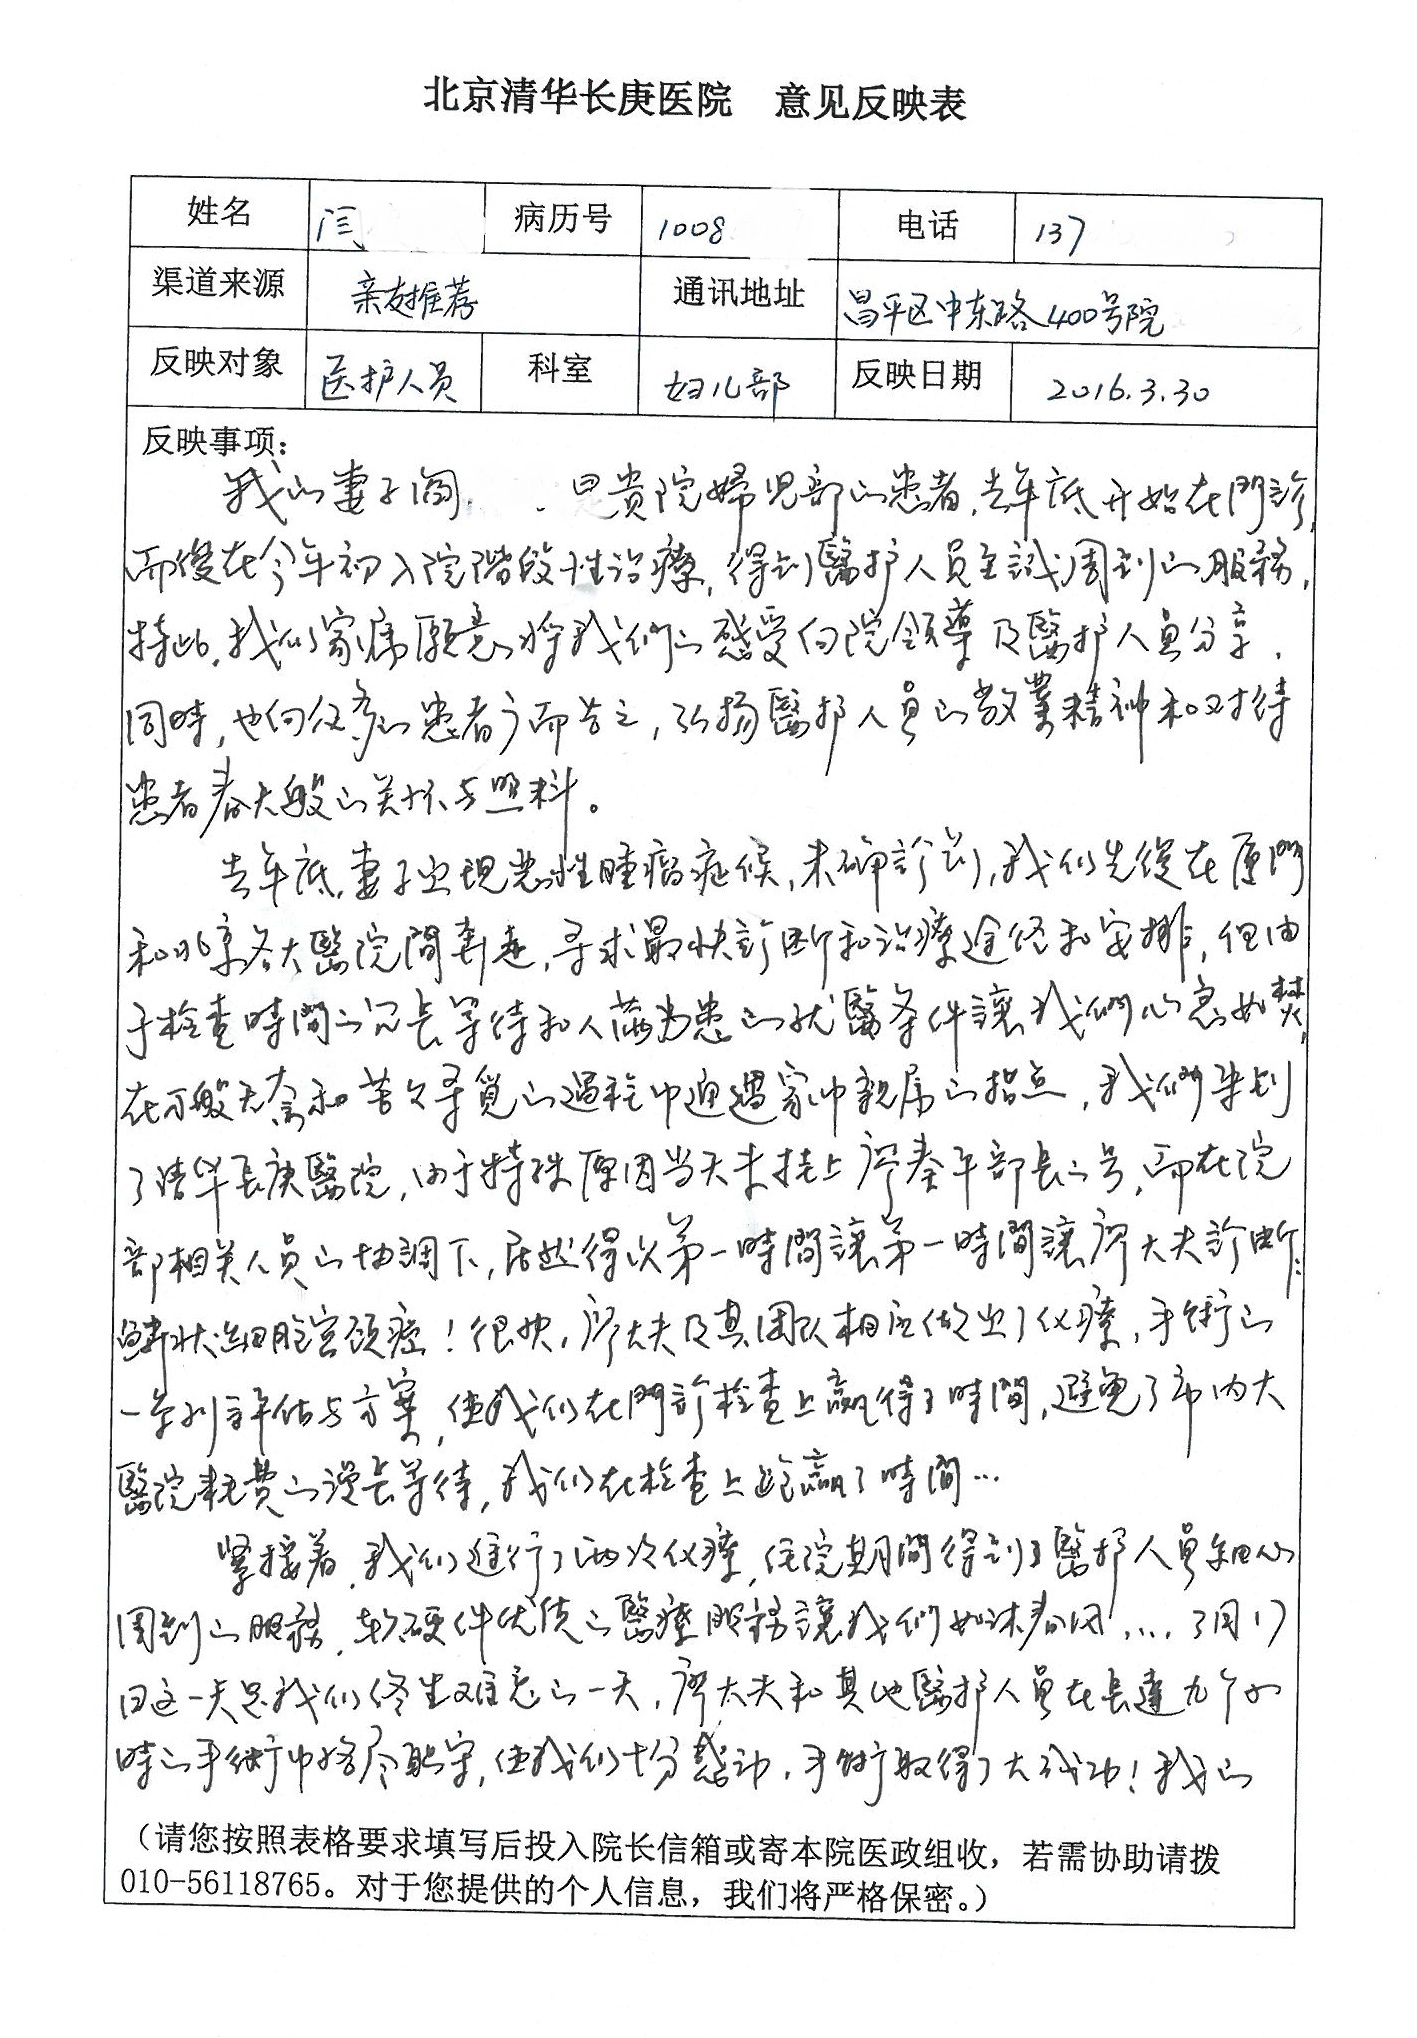 北京清华长庚医院 意见反映表
姓名 闫 病历号 1008 电话 137
渠道来源 亲友推荐 通讯地址 昌平区中东路400号院
反映对象 医护人员 科室 妇儿部 反映日期 2016.3.30
反映事项：
我的妻子阎 是貴院婦児部的患者,去年底开始在門診,
而後在今年初入院階段性治療,得到醫护人员至誠周到的服務,
特此,我们家属願意将我們的感受向院領導及醫护人員分享.
同時,也向众多的患者广而告之,弘扬醫护人员的敬業精神和对待
患者春天般的关怀与照料。
去年底,妻子出现恶性腫瘤症候,未确診前,我们先後在厦門
和北京各大醫院間奔走,寻求最快診断和治療途径和安排,但由
于检查時間的冗長等待和人满为患的就醫条件讓我們心急如焚,
在万般无奈和苦苦寻覓的過程中通過家中親属的指点,我們来到
了清华長庚醫院,由于特殊原因当天未挂上廖秦平部長的号,而在院
部相关人员的协調下,居然得以第一時間讓第一時間讓廖大夫診断:
鳞状細胞宫頸癌!很快,廖大夫及其团队相应做出了化療,手術的
一系列評估与方案,使我们在門診检查上赢得了時間,避免了市内大
醫院耗費的漫長等待,我们在检查上跑赢了時間…
緊接着,我们進行了两次化療,住院期間得到了醫护人员細心
周到的服務,软硬件优质的醫療服務讓我們如沐春风,...3月17
日这一天是我们终生难忘的一天,廖大夫和其他醫护人員在長達九个小
時的手術中恪尽職守,使我们十分感动,手術取得了大成功!我的
（请您按照表格要求填写后投入院长信箱或寄本院医政组收，若需协助请拨
010-56118765。对于您提供的个人信息，我们将严格保密。）